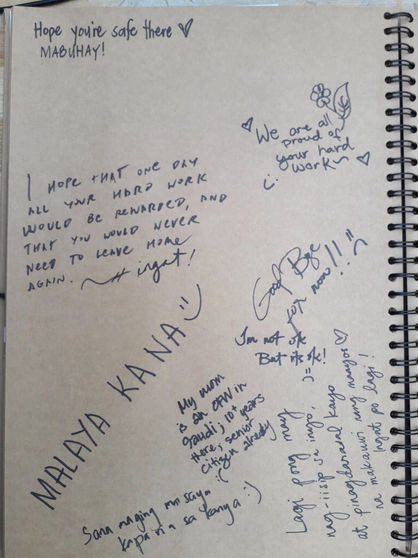 Hope you're safe there ♡
MABUHAY!
♡ We are all
proud of
your hard
work ♡
I HOPE THAT ONE DAY
ALL YOUR HARD WORK
WOULD BE REWARDED, AND
THAT YOU WOULD NEVER
NEED TO LEAVE HOME
AGAIN. ingat!
Good Bye
for now!!
I'm not ok
But it's ok!
MALAYA KANA
My mom
is an OFW in
Saudi; 10+ years
there, senior
citizen already
:(
Sana maging masaya
ka na sa kanya :)
Lagi pong may
nag-iisip sa inyo,
nagdarasal kayo
at pinag
na makauwi nang maayos ♡
Ingat po lagi!